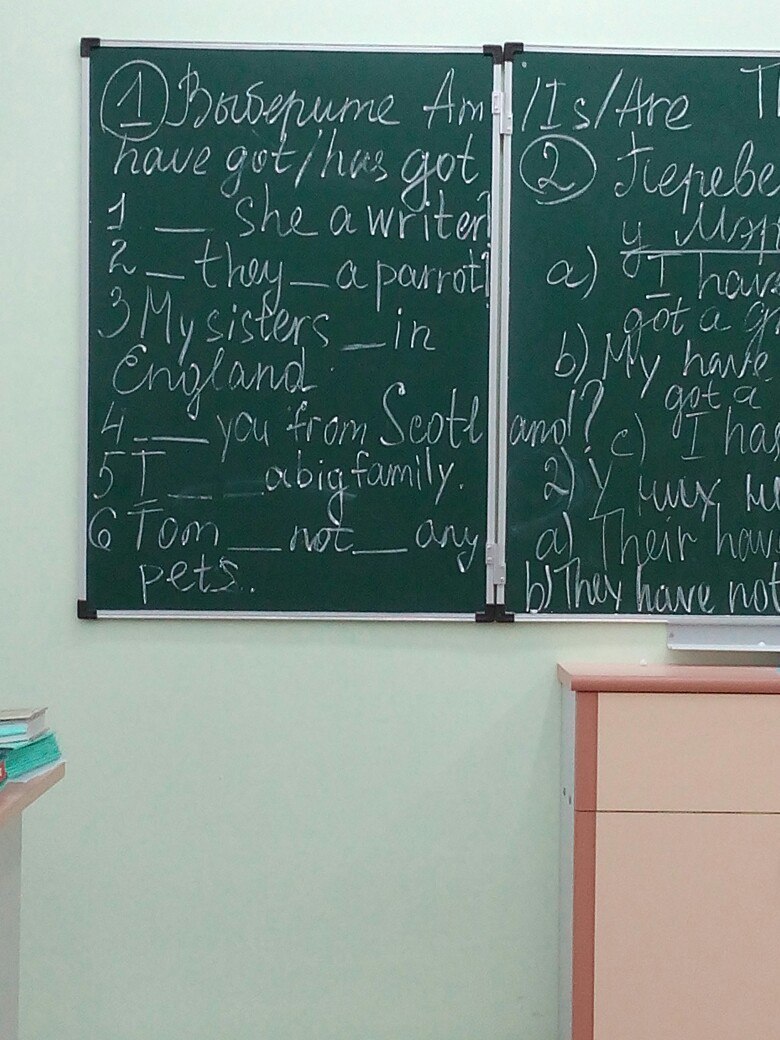 1 Выберите Am/Is/Are
have got/has got
1 __ she a writer?
2 __ they __ a parrot?
3 My sisters __ in
England.
4 __ you from Scotland?
5 I __ __ a big family.
6 Tom __ not __ any
pets.
2
у
a) I
got a
b) My have
got a
c) I
2) У них
a) Their
b) They have not